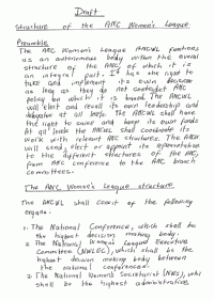 Draft
Structure of the ANC Women's League
Preamble
The ANC Women's League (ANCWL) functions
as an autonomous body within the overall
structure of the ANC of which it is
an integral part. It has the right to
take and implement its own decisions
as long as they do not contradict ANC
policy by which it is bound. The ANCWL
will elect and recall its own leadership and
delegates at all levels. The ANCWL shall have
the right to own and keep its own funds
At all levels the ANCWL shall coordinate its
work with relevant ANC structures. The ANCWL
will send, elect or appoint its representatives
to the different structures of the ANC,
from ANC conference to the ANC branch
committees.
The ANC Women's League structure
The ANCWL shall consist of the following
organs:
1. The National Conference, which shall be
the highest decision making body.
2. The National Women's League Executive
Committee (NWLEC), which shall be the
highest decision making body between
the national conferences.
3. The National Women's Secretariat (NWS), which
shall be the highest administrative